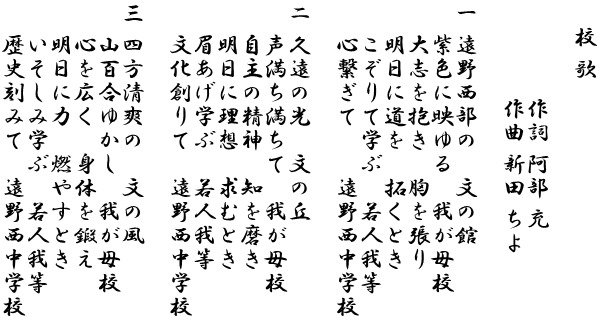 校歌
作詞 阿部 充
作曲 新田 ちよ
一 遠野西部の 文の館
紫色に映ゆる 我が母校
大志を抱き 胸を張り
明日に道を 拓くとき
こぞりて学ぶ 若人我等
心繋ぎて 遠野西中学校
二 久遠の光 文の丘
声満ち満ちて 我が母校
自主の精神 知を磨き
明日に理想 求むとき
眉あげ学ぶ 若人我等
文化創りて 遠野西中学校
三 四方清爽の 文の風
山百合ゆかし 我が母校
心を広く 身体を鍛え
明日に力 燃やすとき
いそしみ学ぶ 若人我等
歴史刻みて 遠野西中学校